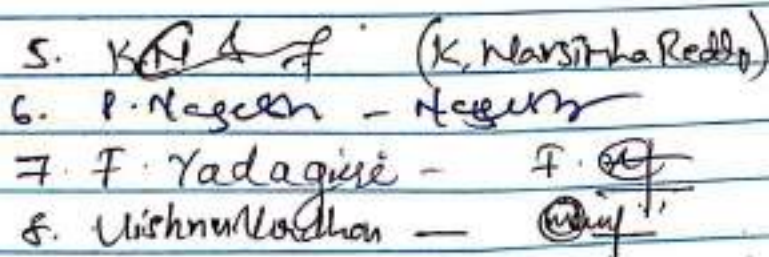 5. (K. Narsimha Reddy)
6. P. Nagesh - Nagesh
7. F. Yadagiri - F.
8. Vishnuvardhan —